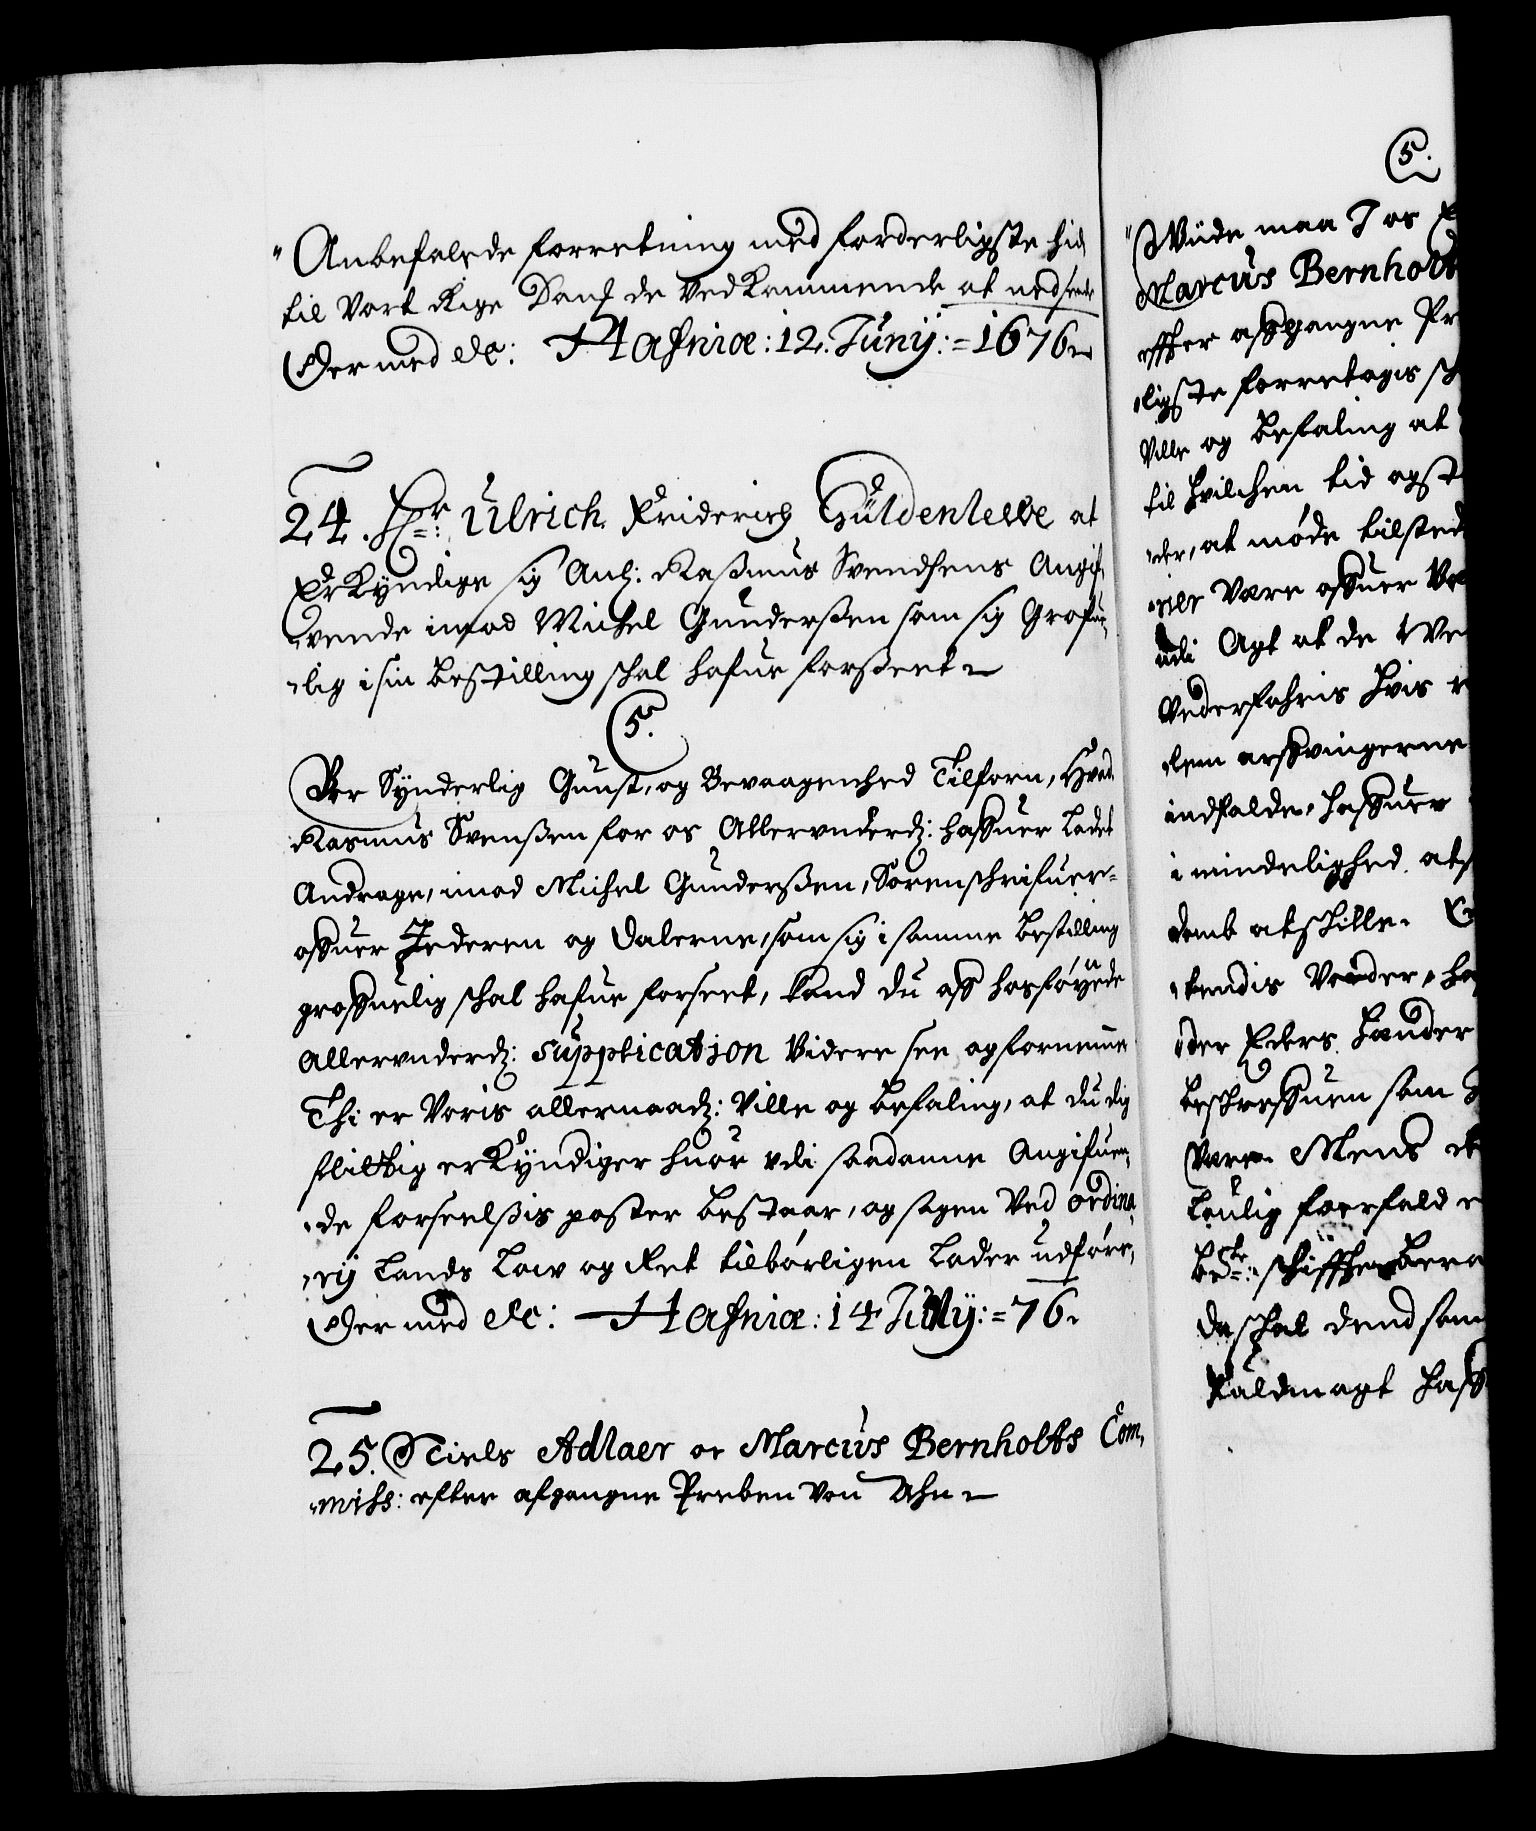 "Anbefalede forretning med forderligste hid
til Vort Rige Dans de Vedkommende at nedsende
Der med etc: Hafniæ: 12. Junij: = 1676
24. Hr: Ulrich Friderich Güldenlewe at
ErKyndige sig Anl: Rasmus Svendsens Angif,
,vende imod Michel Gunderßen som sig Grofue,
,lig i sin bestilling schal hafue forßeet
5.
Vor Synderlig Gunst, og Bevaagenhed Tilforn, Hvad
Rasmus Svenßen for os Allerunderd: haffuer Ladet
Andrage, imod Michel Gunderßen, Sorenschrifuer
offuer Jederen og Dalerne, som sig i samme bestilling
groffuelig schal hafue forseet, kand du aff hosføyede
Allerunderd: Supplication Videre see og fornemme
Thi er Voris allernaad: Ville og befaling, at du dig
flittig erKyndiger huor udi saadanne Angifuen,
,de forseelßis poster bestaar, og sagen Ved ordina,
,rij Lands Low og Ret tilbørligen Lader udføre,
Der med etc: Hafniæ: 14 Julij: = 76.
25. Niels Adlaer oc Marcus Bernholts Com,
,miss: efter afgangne Preben Von Ahn
5.
"Wiide maa I os
Marcus Bernholt
effter affgangne Pr
,ligste forretagis sch
Ville og befaling at
til hvilchen tid og st
,der, at møde tilsted
Være offuer
udi Agt at de
Vederfahris hvis
dem arffvingerne
indfalde, haffuer
i mindelighed at
demb atschille.
,kendis Vænder, ha
der Eders hænder
beschreffuen som
Være. Mens
Louflig forfald
da schal dend som
Fuldmagt haff